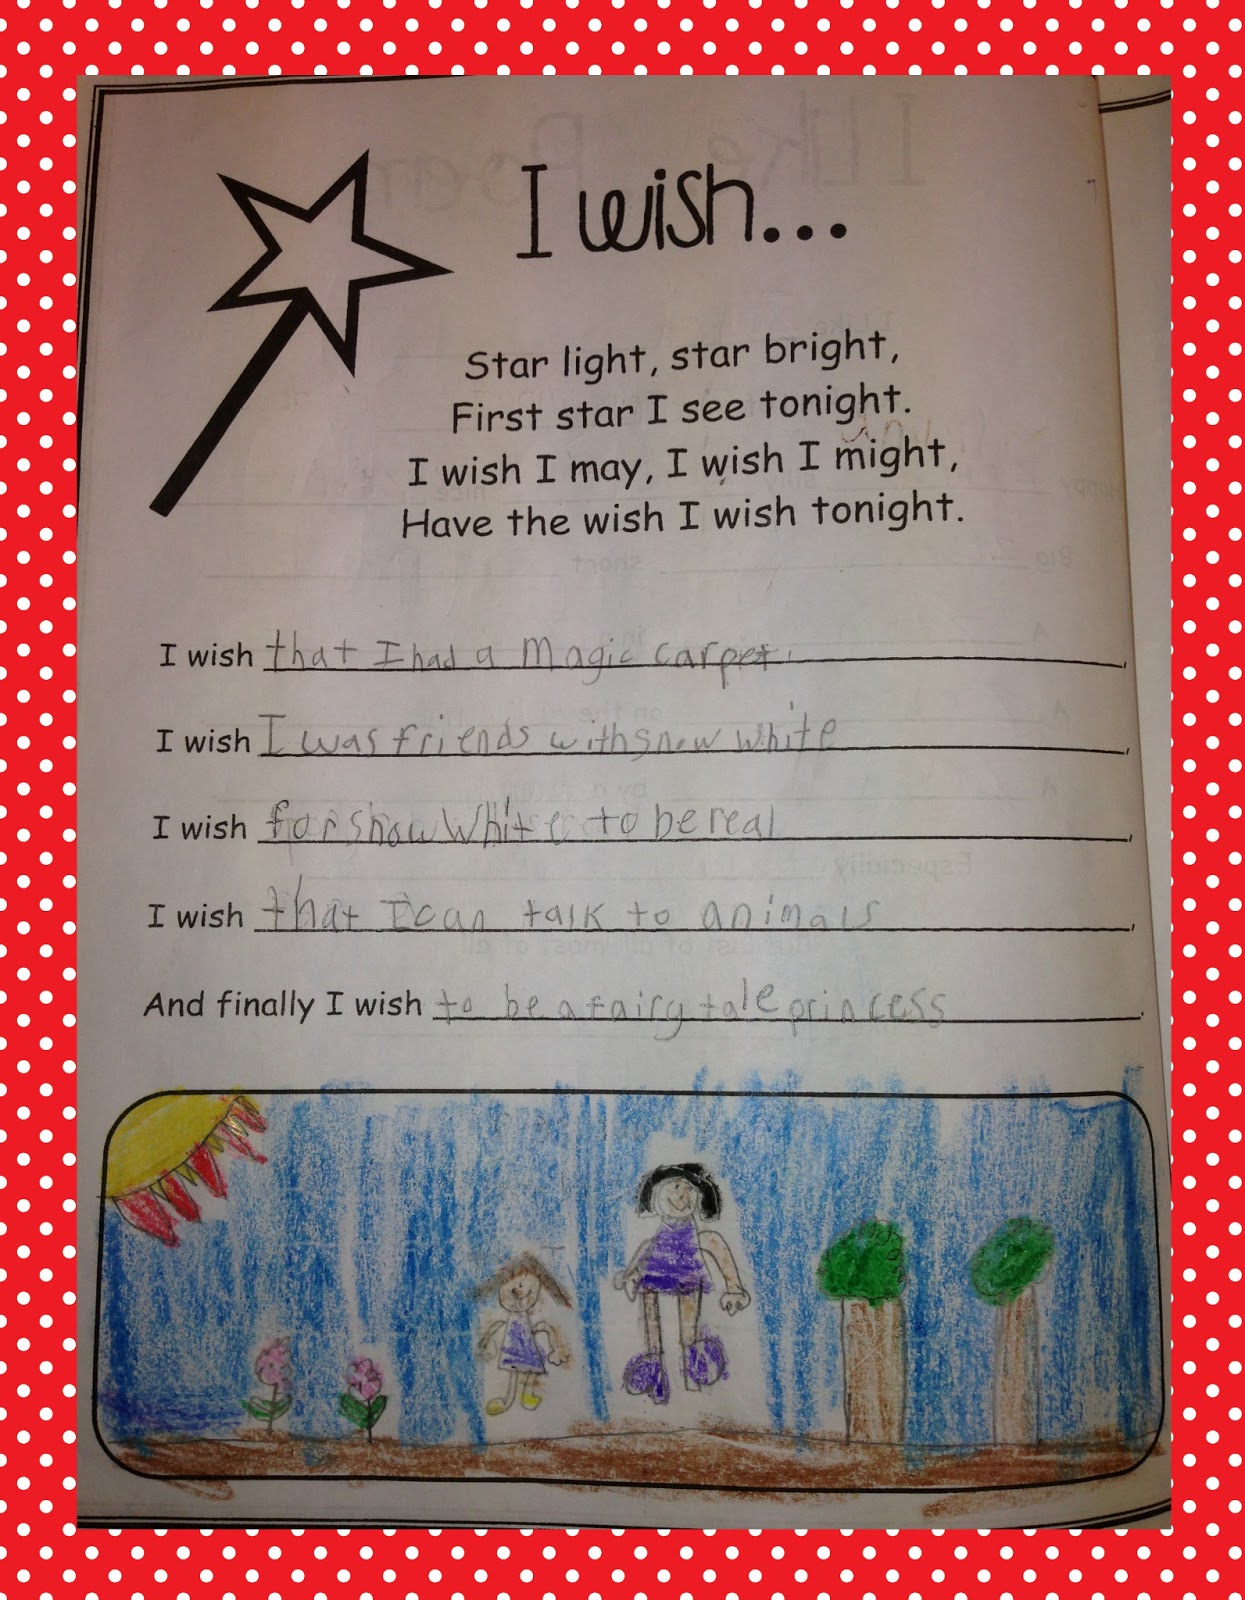 I wish...
Star light, star bright,
First star I see tonight.
I wish I may, I wish I might,
Have the wish I wish tonight.
I wish that I had a magic carpet.,
I wish I was friends with snow white,
I wish for snow white to be real,
I wish that I can talk to animals,
And finally I wish to be a fairy tale princess.